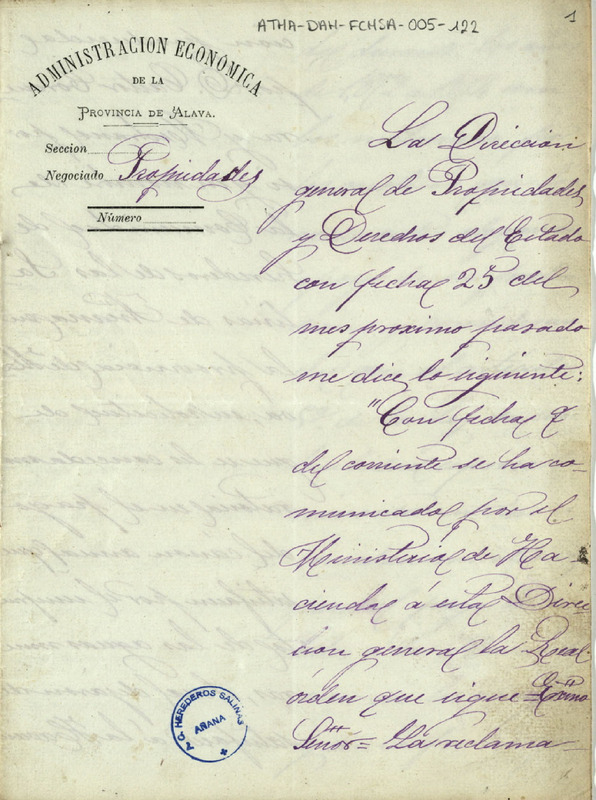 ATHA-DAH-FCHSA-005-122
1
ADMINISTRACIÓN ECONÓMICA
DE LA
PROVINCIA DE ALAVA.
Seccion
Negociado Propiedades
Número
La Direccion
general de Propiedades
y Derechos del Estado
con fecha 25 del
mes proximo pasado
me dice lo siguiente:
"Con fecha 7
del corriente se ha co-
municado por el
Ministerio de Ha-
cienda á esta Direc
cion general la Real
órden que sigue = Excmo
Señor = La reclama-
G. HEREDEROS SALINAS
AÑANA